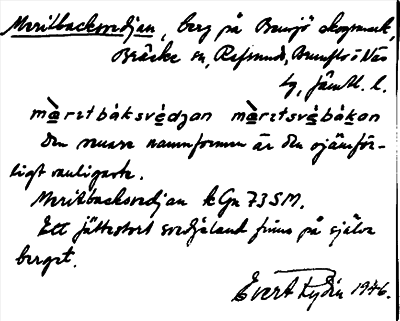 Meritbacksvedjan, berg på Bensjö skogsmark,
Bräcke sn, Refsunds, Brunflo o Näs
tg, Jämtl. l.
màrɩtbáksvèdjan màrɩtsvèbákan
Den senare namnformen är den ojämför-
ligt vanligaste.
Meritbacksvedjan kGn 73SM.
Ett jättestort svedjeland finns på själva
berget.
Evert Rydin 1946.